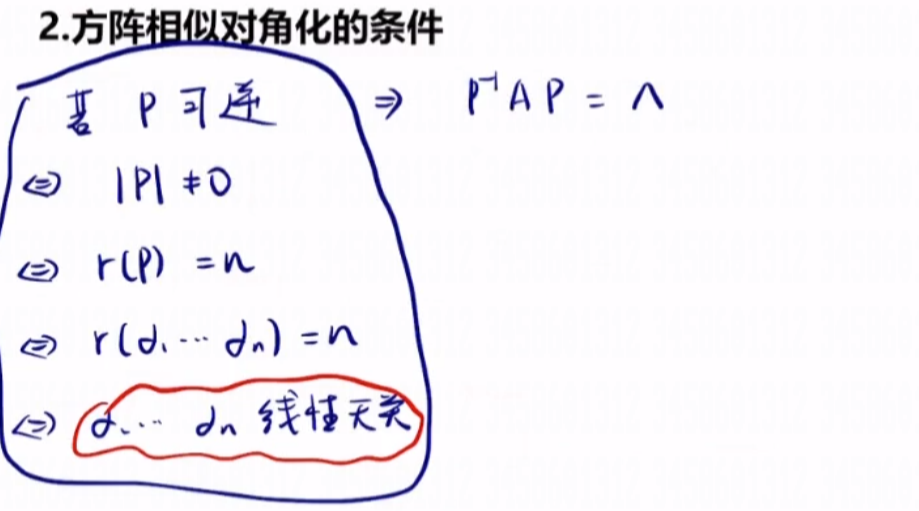 2.方阵相似对角化的条件
若 P 可逆 ⇒ P⁻¹AP = Λ
⇔ |P| ≠ 0
⇔ r(P) = n
⇔ r(α₁ ⋯ αₙ) = n
⇔ α₁ ⋯ αₙ 线性无关